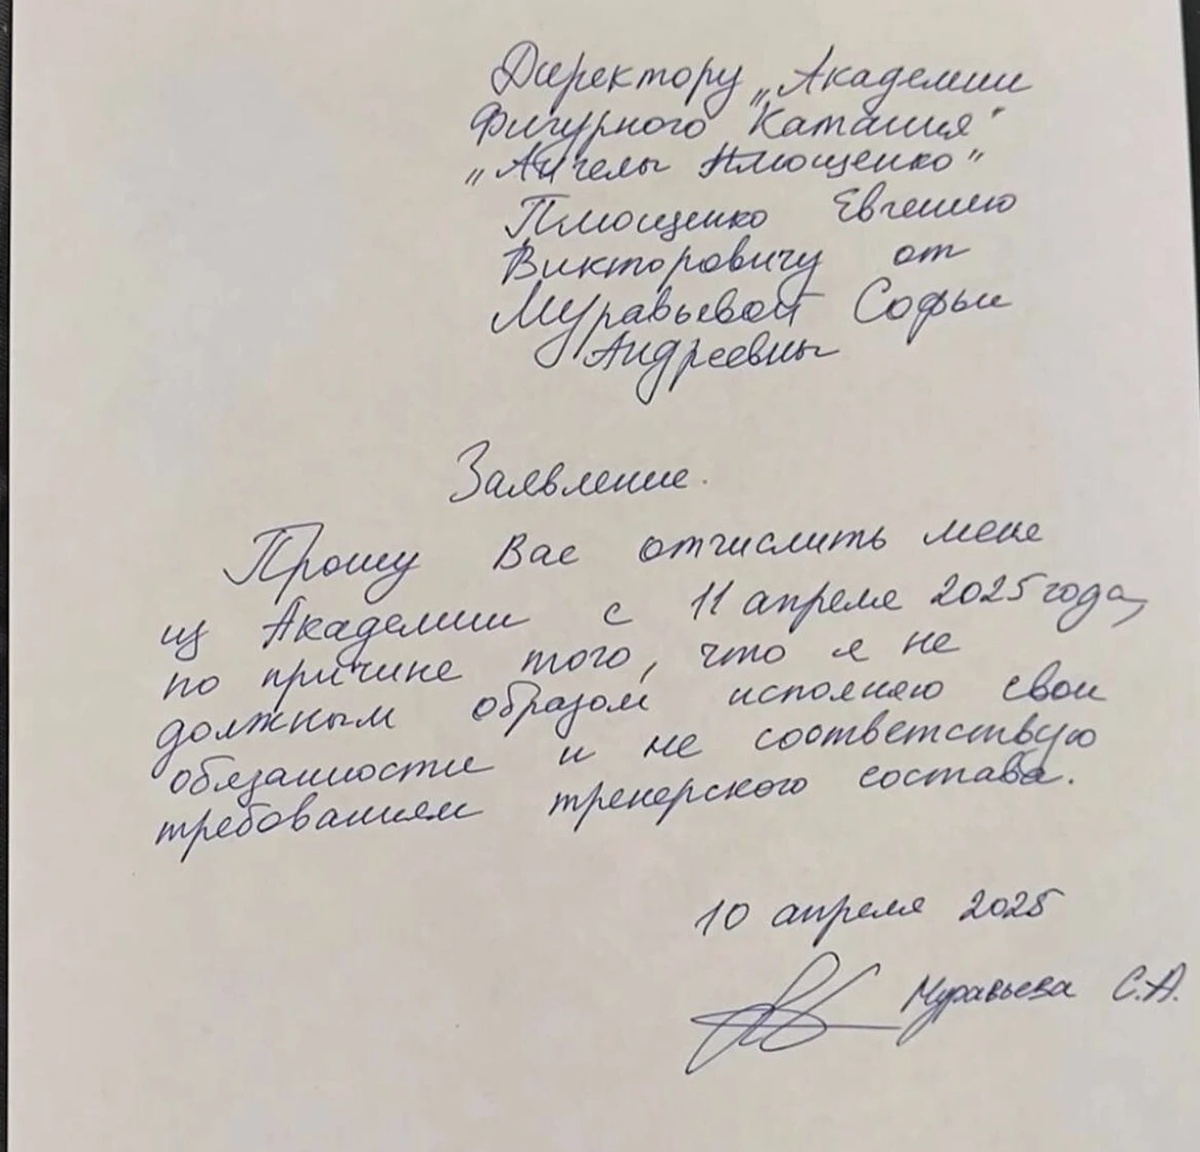 Директору „Академии
Фигурного Катания"
„Ангелы Плющенко"
Плющенко Евгению
Викторовичу от
Муравьевой Софьи
Андреевны
Заявление.
Прошу Вас отчислить меня
из Академии с 11 апреля 2025 года,
по причине того, что я не
должным образом исполняю свои
обязанности и не соответствую
требованиям тренерского состава.
10 апреля 2025
Муравьева С.А.